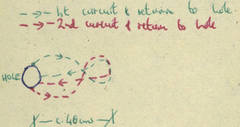 --> - 1st circuit & return to hole
--> - 2nd circuit & return to hole.
HOLE
X— c.46cms —X